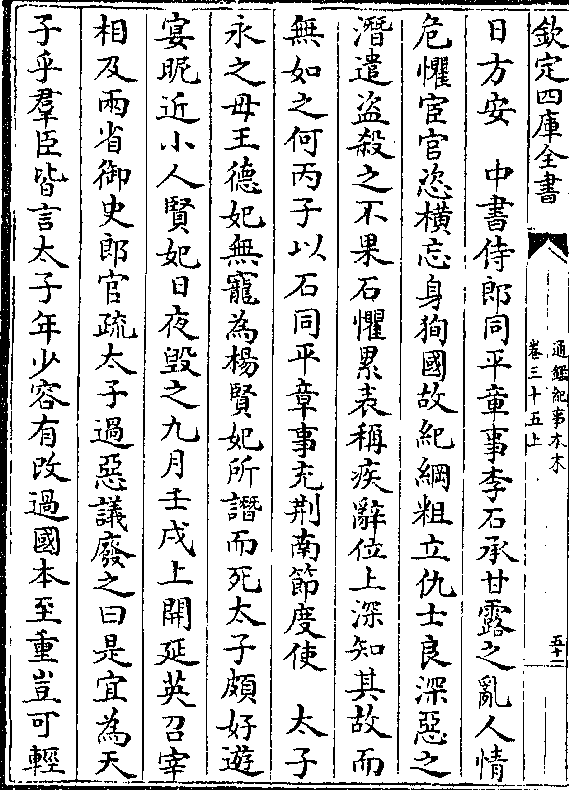 欽定四庫全書
通鑑紀事本末
卷三十五上
五十二
日方安　中書侍郎同平章事李石承甘露之亂人情
危懼宦官恣橫忘身狥國故紀綱粗立仇士良深惡之
潛遣盜殺之不果石懼累表稱疾辭位上深知其故而
無如之何丙子以石同平章事充荆南節度使　太子
永之母王德妃無寵為楊賢妃所譖而死太子頗好遊
宴昵近小人賢妃日夜毁之九月壬戌上開延英召宰
相及兩省御史郎官疏太子過惡議廢之曰是宜為天
子乎羣臣皆言太子年少容有改過國本至重豈可輕